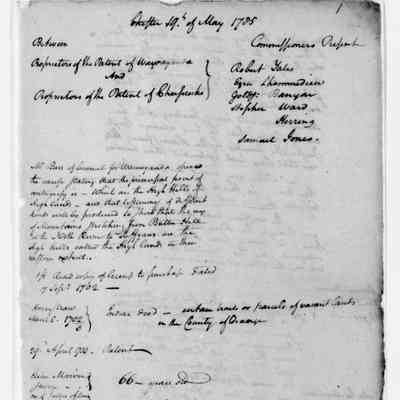 1
Chester 19th of May 1785
Between
Proprietors of the Patent of Wawayanda
And
Proprietors of the Patent of Cheesecocks
Commissioners Present
Robert Yates
Ezra L'hommedieu
Golds. Banyar
Stephen Ward
Herring
Samuel Jones.
Mr. Burr of Counsel for Wawayanda opened
the cause stating that the principal point of
is Which are the High Hills of
high lands and that testimony of different
kinds will be produced to that the
of mountains stretching from Butter Hill
to the North River to are the
high hills called the High lands in their
1st Read copy of License to purchase Dated
7 Sept. 1702 —
March 5. 1702/3
Indian deed — certain tracts or parcels of vacant Lands
in the County of Orange
29th April 1703. Patent
66 — years old